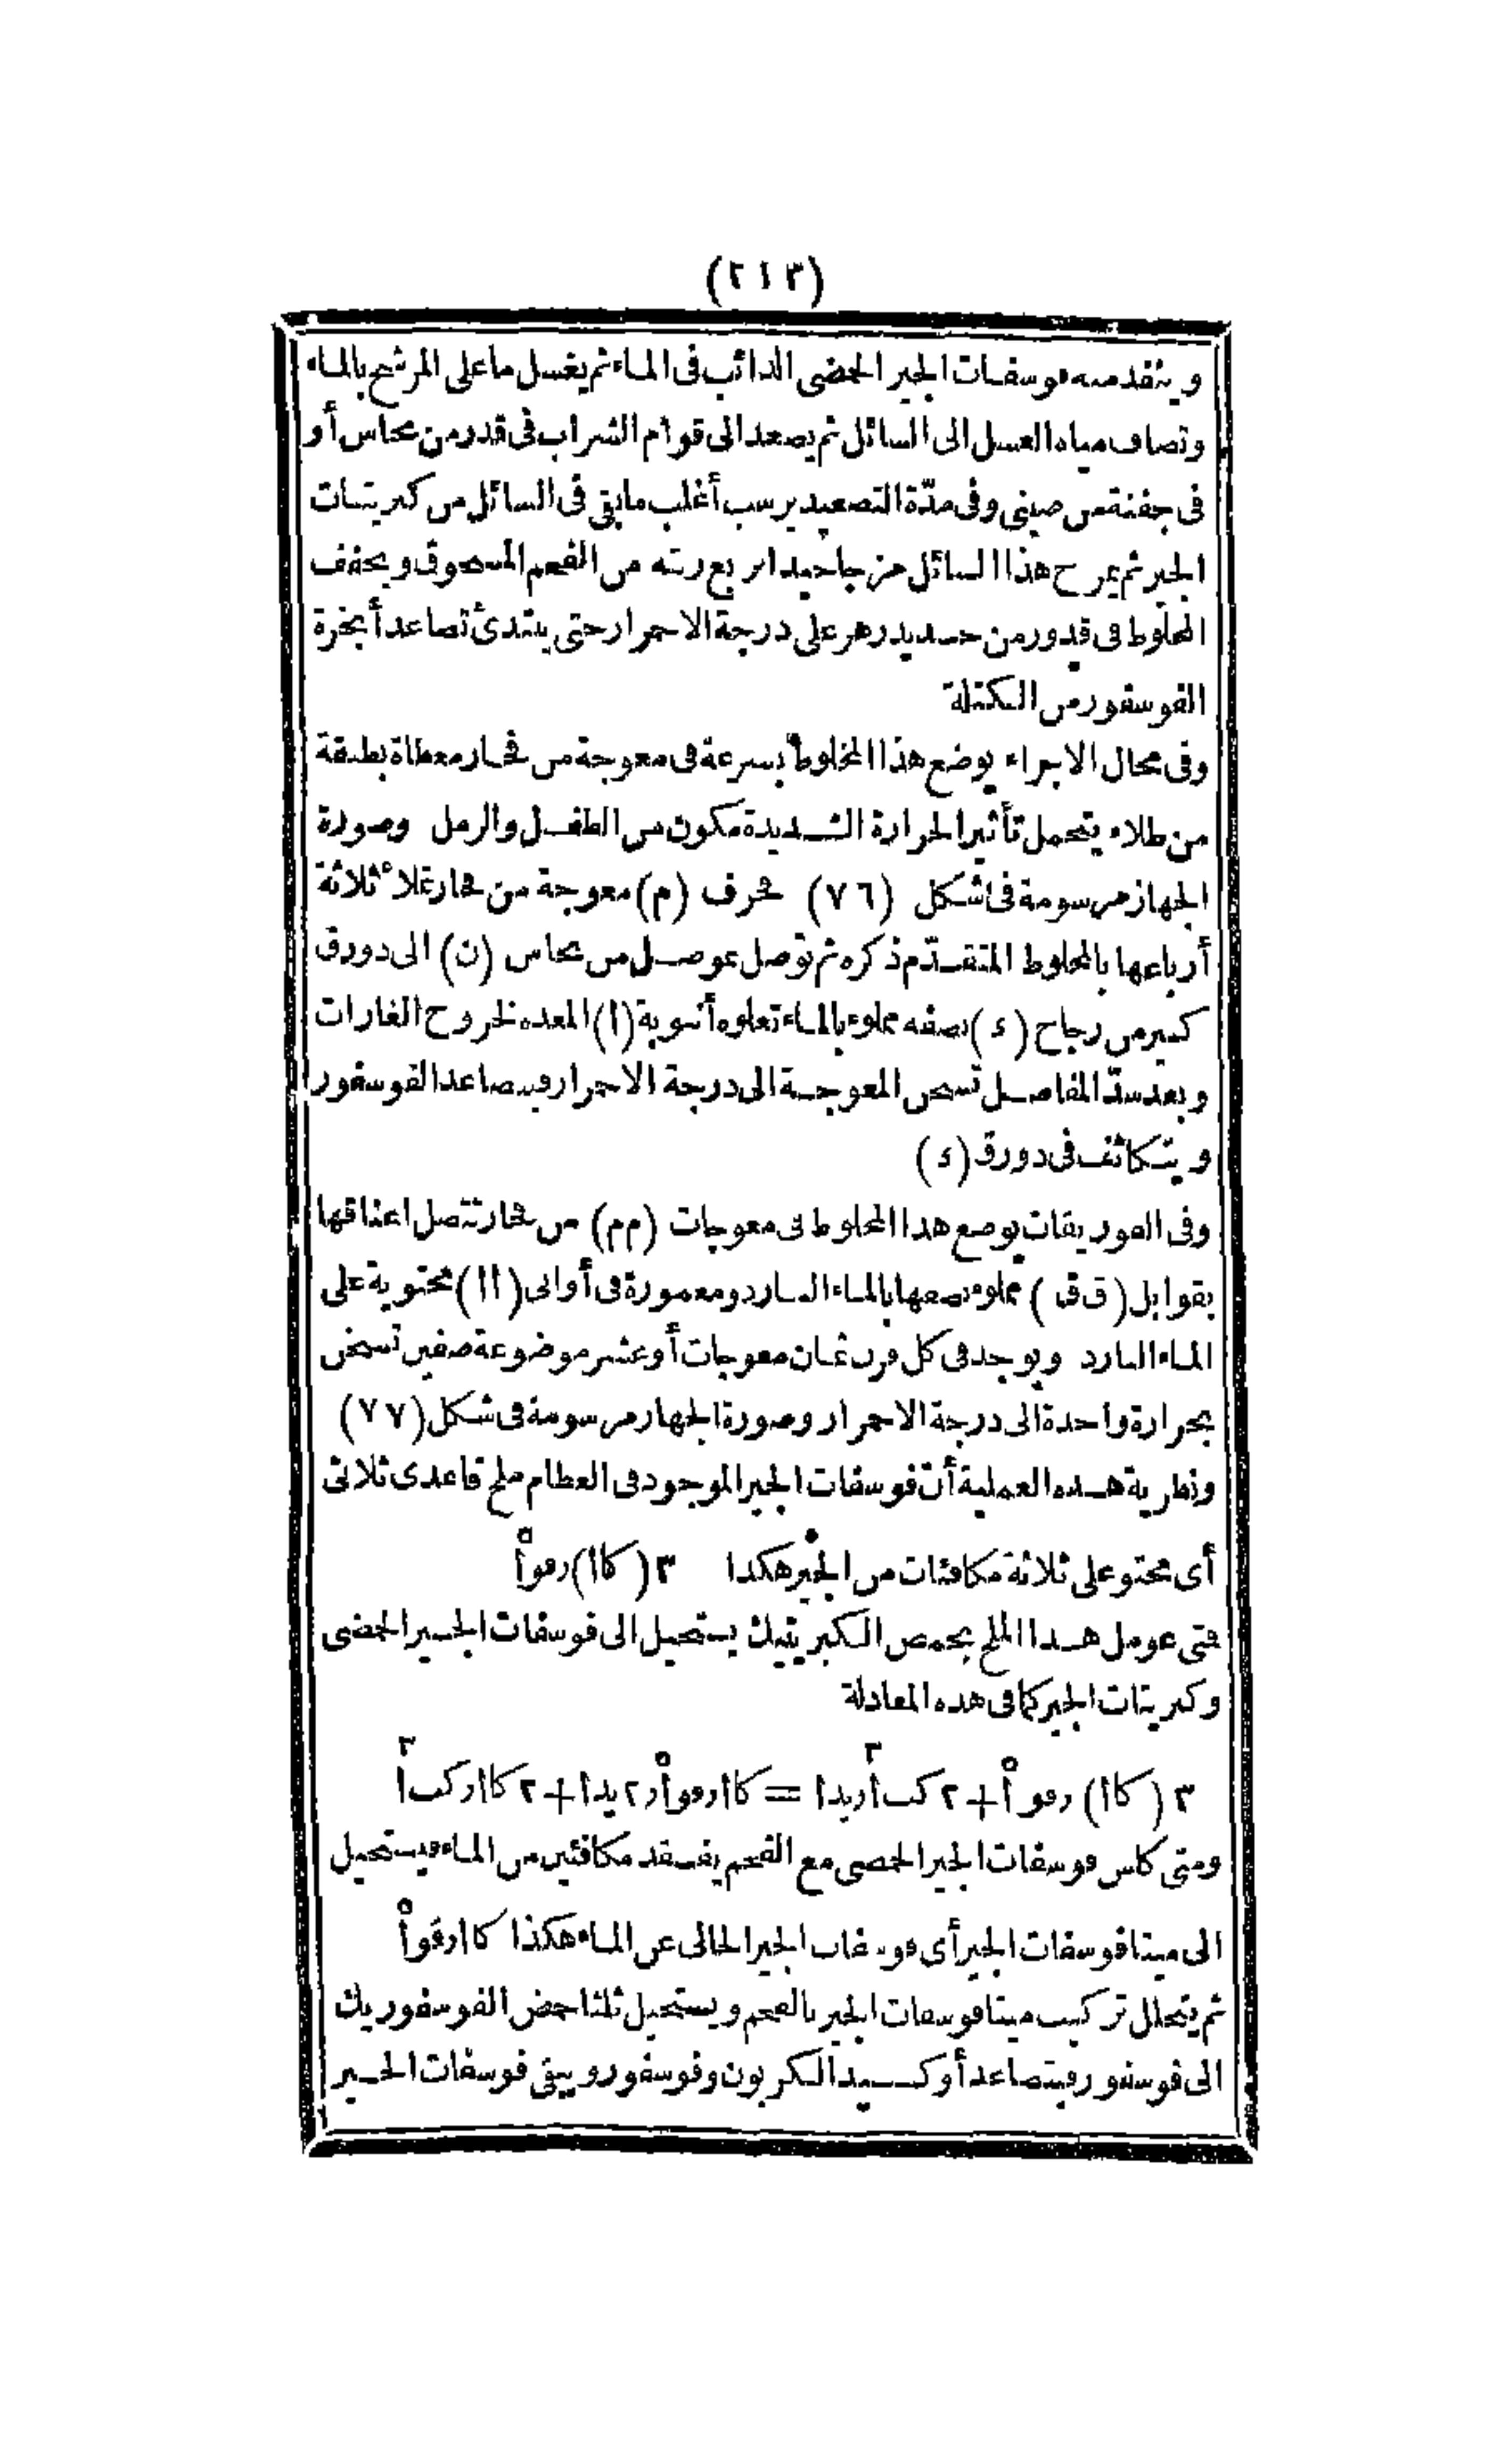 (٢١٣)
وينفد منه فوسفات الجير الحمضى الذائب فى الماء ثم يغسل ما على المرشح بالماء
وتضاف مياه الغسل الى السائل ثم يصعد الى قوام الشراب فى قدر من نحاس أو
فى جفنة من صينى وفى مدّة التصعيد يرسب أغلب ما بقى فى السائل من كبريتات
الجير ثم يمزج هذا السائل مزجا جيدا بربع زنته من الفحم المسحوق ويجفف
المخلوط فى قدور من حديد زهر على درجة الاحمرار حتى يبتدئ تصاعد أبخرة
الفوسفور من الكتلة
وفى محال الاجزاء يوضع هذا المخلوط بسرعة فى معوجة من فخار مغطاة بطبقة
من طلاء يتحمل تأثير الحرارة الشديدة مكون من الطفل والرمل وصورة
الجهاز مرسومة فى شكل (٧٦) فحرف (م) معوجة من فخار تملأ ثلاثة
أرباعها بالمخلوط المتقدّم ذكره ثم توصل بموصل من نحاس (ن) الى دورق
كبير من زجاج (د) نصفه مملوء بالماء تعلوه أنبوبة (ا) المعدة لخروج الغازات
وبعد سدّ المفاصل تسخن المعوجة الى درجة الاحمرار فيتصاعد الفوسفور
ويتكاثف فى دورق (د)
وفى الفوريقات يوضع هذا المخلوط فى معوجات (م م) من فخار تتصل اعناقها
بقوابل (ق ق) مملوء نصفها بالماء البارد ومغمورة فى أوانى (اا) محتوية على
الماء البارد ويوجد فى كل فرن ثمان معوجات أو عشر موضوعة صفين تسخن
بحرارة واحدة الى درجة الاحمرار وصورة الجهاز مرسومة فى شكل (٧٧)
ونظرية هذه العملية أن فوسفات الجير الموجود فى العظام ملح قاعدى ثلاثى
أى محتو على ثلاثة مكافئات من الجير هكذا ٣ (كاا) ر فو اْ٥
فتى عومل هذا الملح بحمض الكبريتيك يستحيل الى فوسفات الجير الحمضى
وكبريتات الجير كما فى هذه المعادلة
٣ (كاا) ر فو ا٥ + ٢ كب ا٣ ر يدا = كاا ر فو ا٥ ر ٢ يدا + ٢ كاا ر كب ا٣
ومتى كلس فوسفات الجير الحمضى مع الفحم يفقد مكافئين من الماء فيستحيل
الى ميتافوسفات الجير أى فوسفات الجير الخالى عن الماء هكذا كاا ر فو ا٥
ثم يتحلل تركيب ميتافوسفات الجير بالفحم ويستحيل ثلثا حمض الفوسفوريك
الى فوسفور فيتصاعد أوكسيد الكربون وفوسفور ويبقى فوسفات الجير